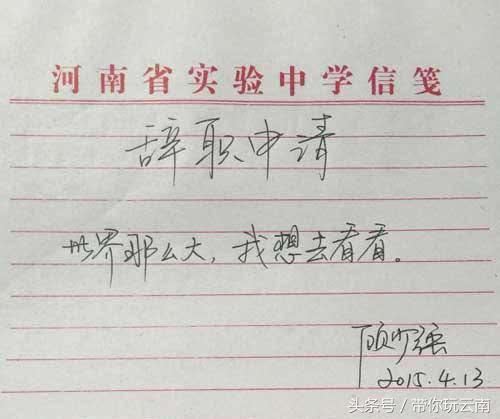 河南省实验中学信笺
辞职申请
世界那么大，我想去看看。
顾少强
2015.4.13
头条号/带你玩云南